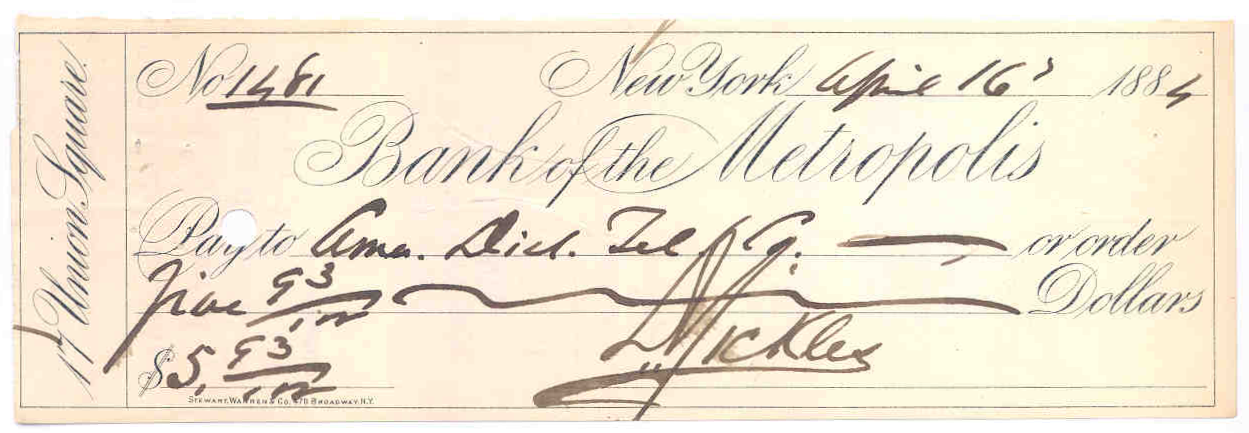 17 Union Square.
No 1481 New York April 16 1884
Bank of the Metropolis
Pay to Ama. Dist. Tel. Co. or order
Five 93/100 Dollars
$5, 93/100
STEWART, WARREN & CO. 478 BROADWAY, N.Y.